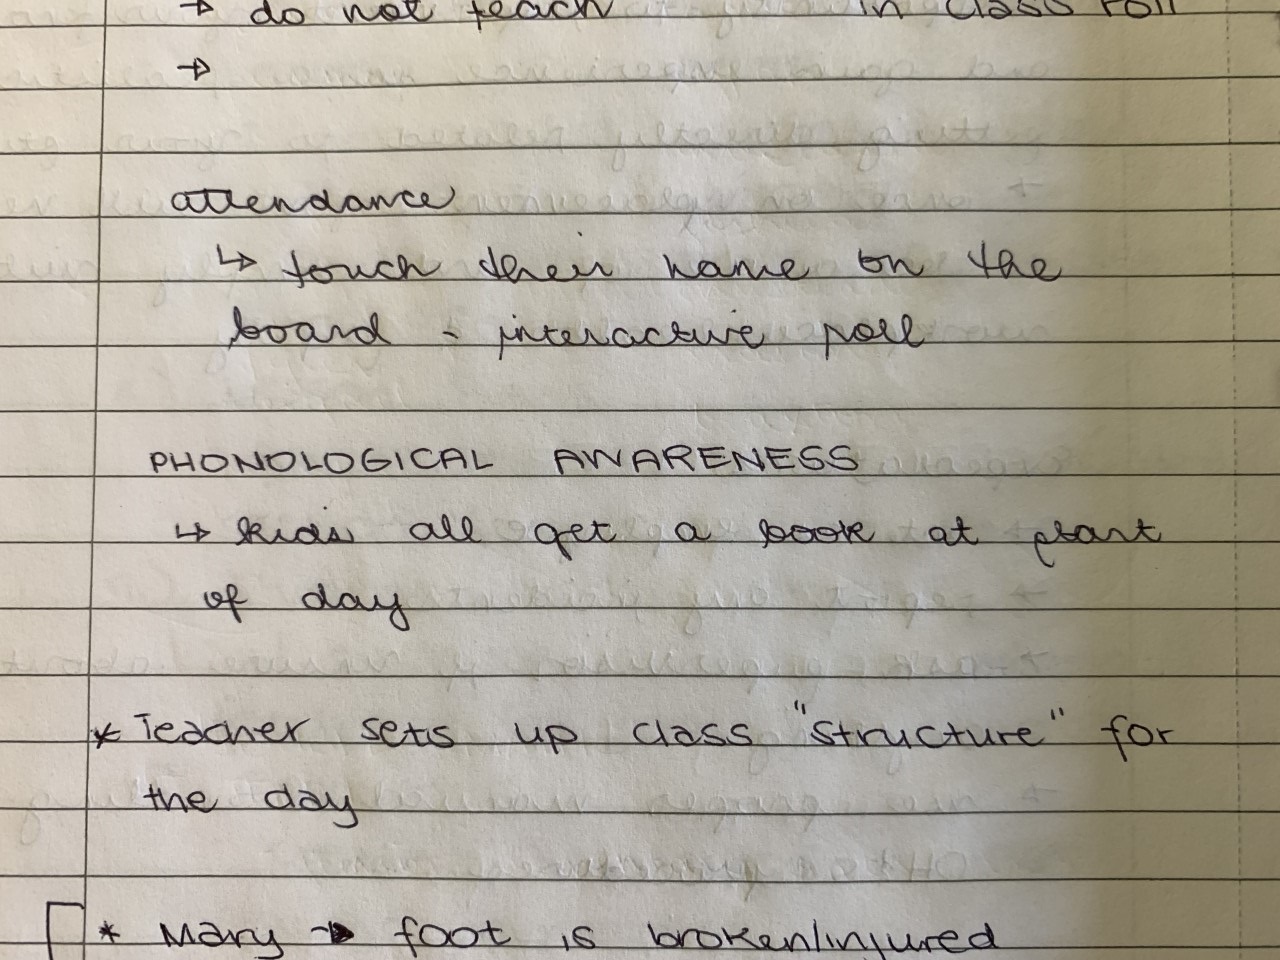 → do not teach in class roll
→
attendance
↳ touch their name on the
board - interactive roll
PHONOLOGICAL AWARENESS
↳ kids all get a book at start
of day
* Teacher sets up class "structure" for
the day
* Mary → foot is broken/injured